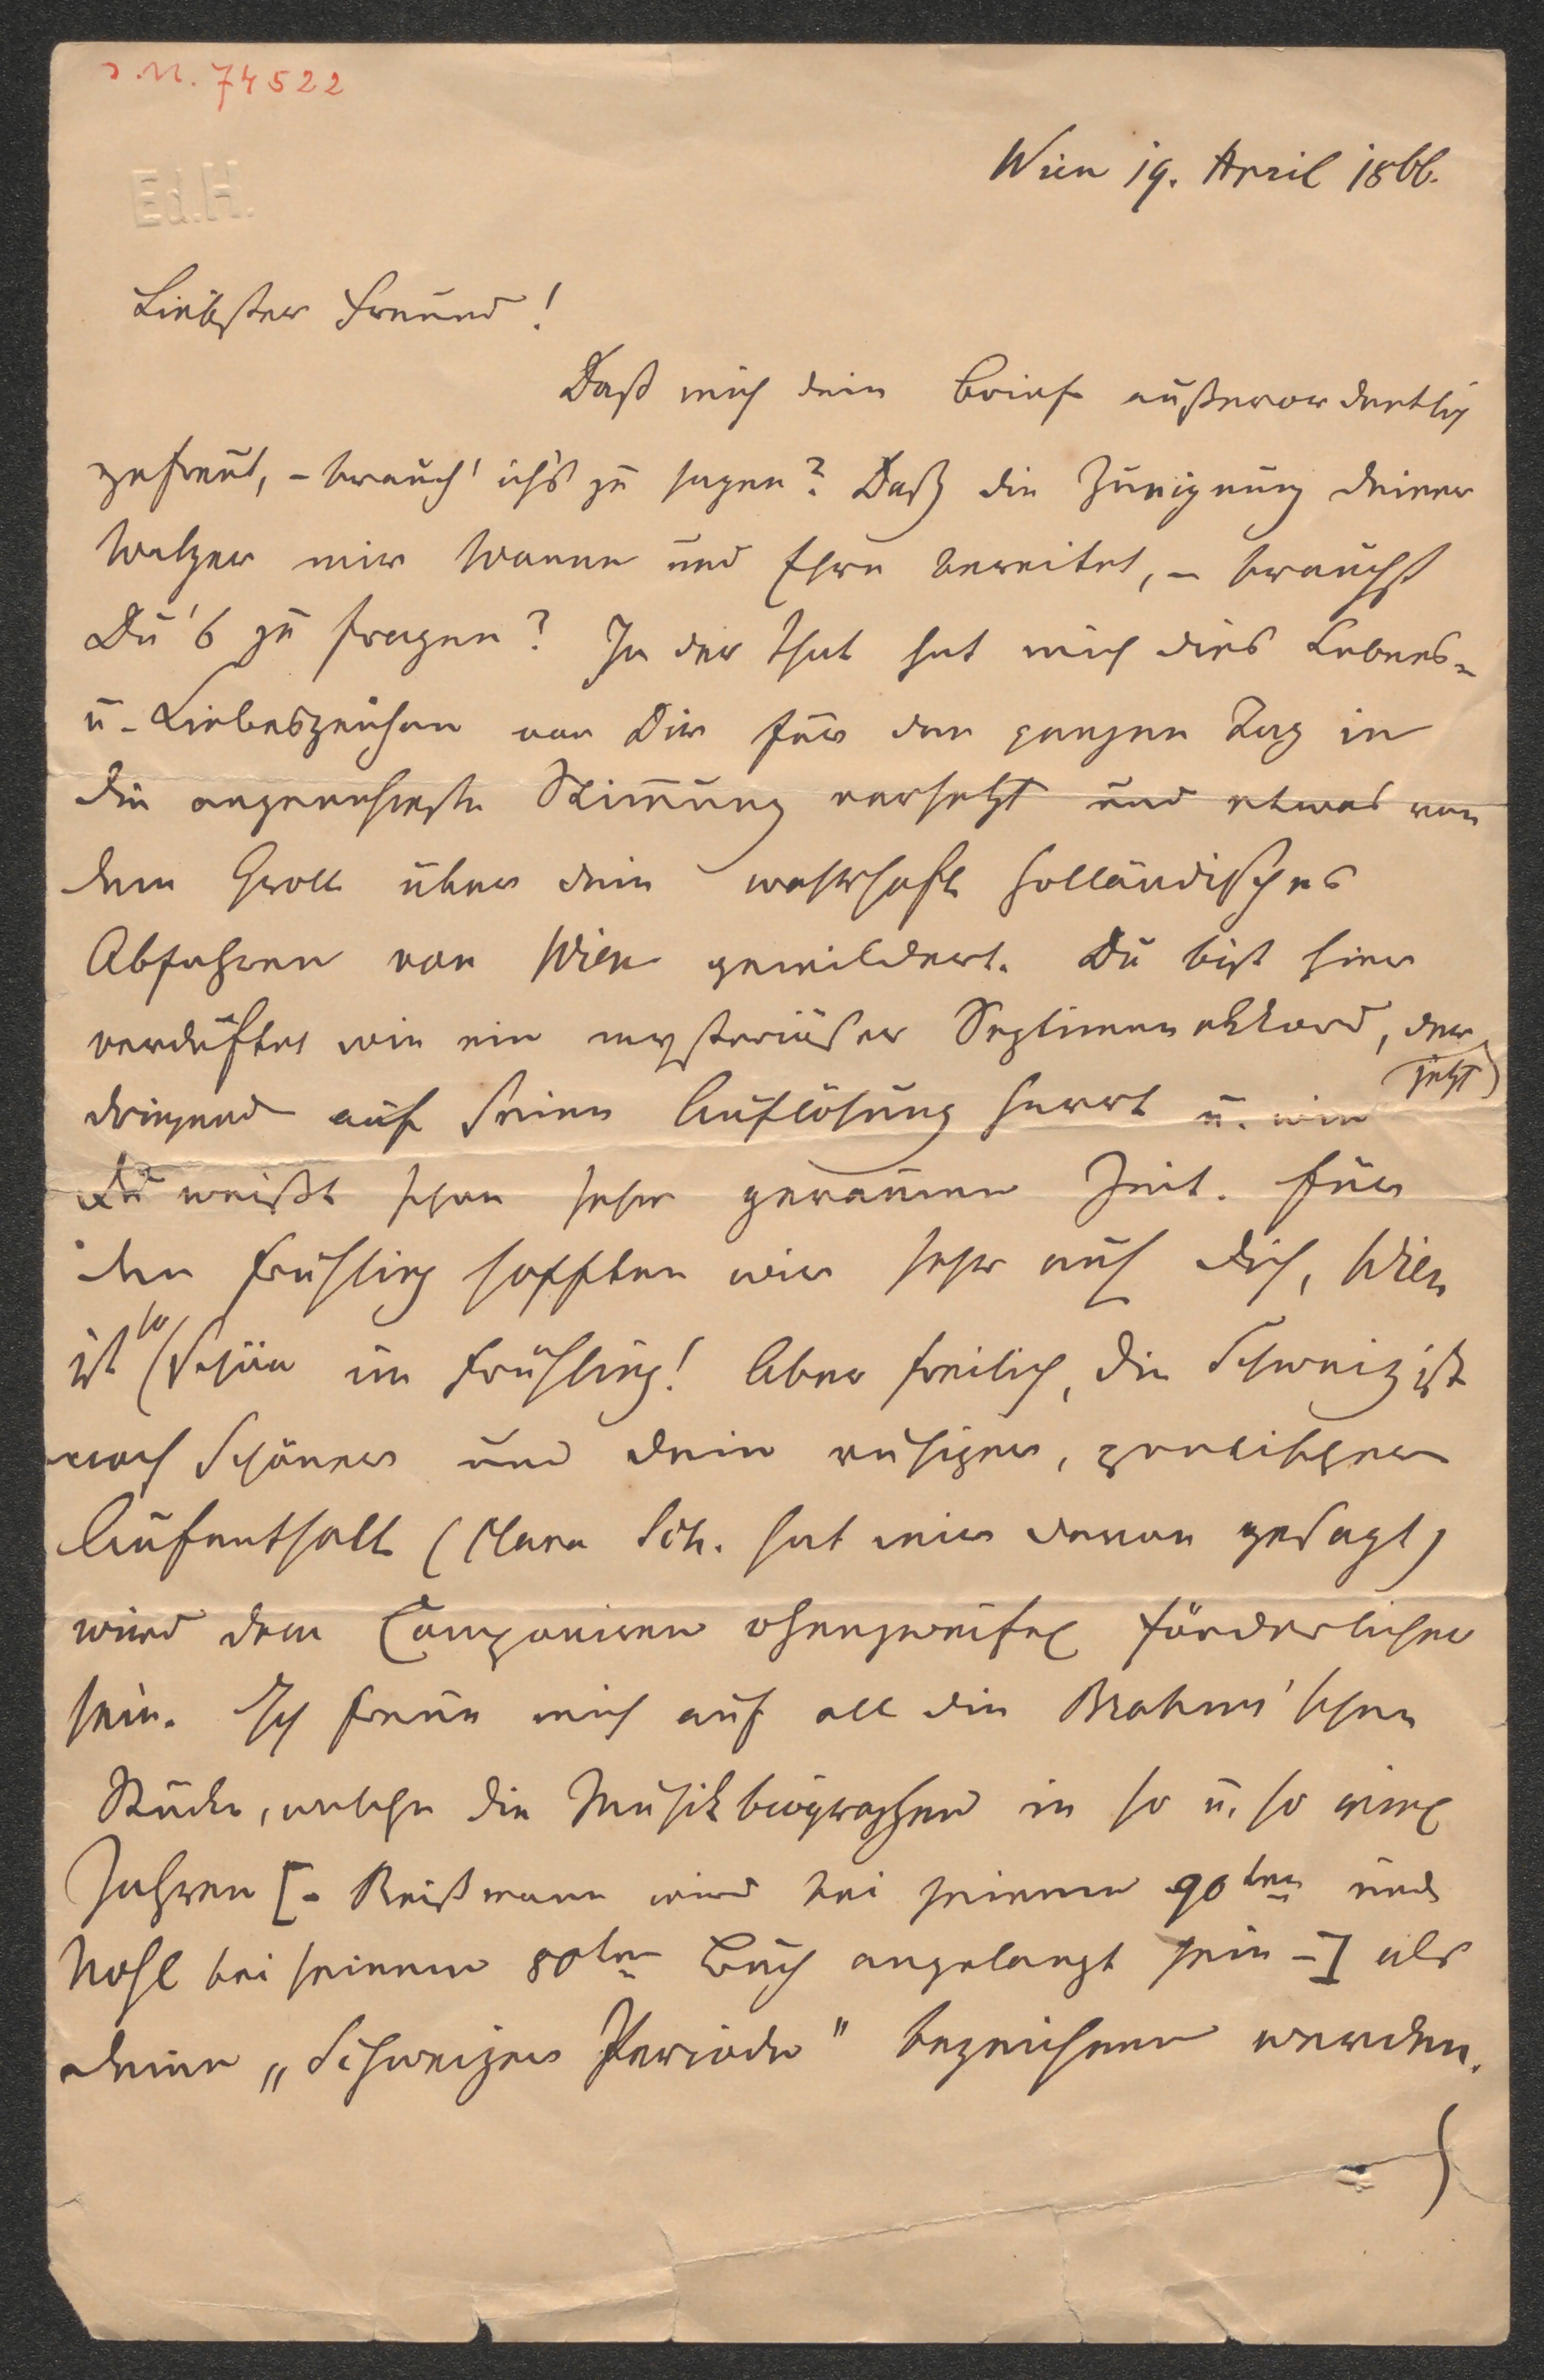 I.N. 74522
Ed.H.
Wien 19. April 1866.
Liebster Freund!
Daß mich dein Brief außerordentlich
gefreut, – brauch' ich's zu sagen? Daß die Zueignung deiner
Walzer mir Wonne und Ehre bereitet, – brauchst
Du's zu fragen? In der That hat mich dies Lebens-
u. Liebeszeichen von Dir für den ganzen Tag in
die angenehmste Stimmung versetzt und etwas von
dem Groll über dein wahrhaft holländisches
Abfahren von Wien gemildert. Du bist hier
verduftet wie ein mysteriöser Septimenakkord, der
dringend auf seine Auflösung harrt u. wie
jetzt
Du weißt schon sehr geraume Zeit. Für
den Frühling hofften wir sehr auf dich, Wien
ist so schön im Frühling! Aber freilich, die Schweiz ist
noch schöner und dein ruhiger, poetischer
Aufenthalt (Clara Sch. hat mir davon gesagt)
wird dem Componiren ohnezweifel förderlicher
sein. Ich freue mich auf all die Brahms'schen
Stücke, welche die Musikbiographen in so u. so viel
Jahren [– Reißmann wird bei seinem 90ten und
Nohl bei seinem 80ten Buch angelangt sein –] als
deine „Schweizer Periode" bezeichnen werden.